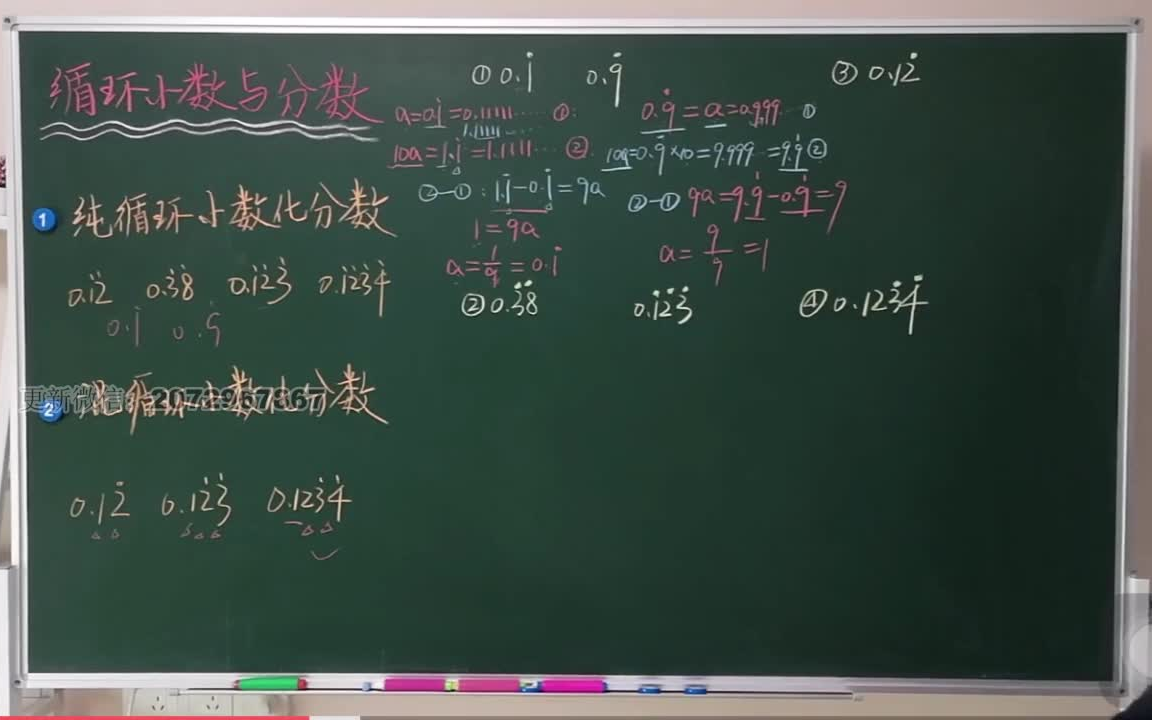 循环小数与分数
1 纯循环小数化分数
0.1̇2̇ 0.3̇8̇ 0.1̇2̇3̇ 0.1̇2̇3̇4̇
0.1̇ 0.9̇
2 混循环小数化分数
更新微信：2072967867
0.12̇ 0.12̇3̇ 0.123̇4̇
① 0.1̇
a=0.1̇=0.11111…… ①
1.1111
10a=1.1̇=1.1111… ②
②-①：1.1̇-0.1̇=9a
1=9a
a=1/9=0.1̇
0.9̇
0.9̇=a=0.999… ①
10a=0.9̇×10=9.999…=9.9̇ ②
②-① 9a=9.9̇-0.9̇=9
a=9/9=1
③ 0.12̇
② 0.3̇8̇ 0.1̇2̇3̇ ④ 0.123̇4̇